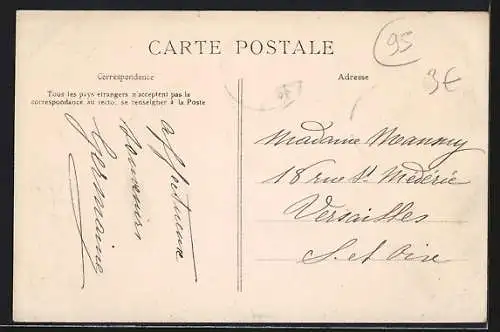 CARTE POSTALE
95
3€
Correspondance
Adresse
Tous les pays étrangers n'acceptent pas la
correspondance au recto, se renseigner à la Poste
affectueux
souvenirs
Germaine
Madame Manny
18 rue St Médéric
Versailles
S. et Oise